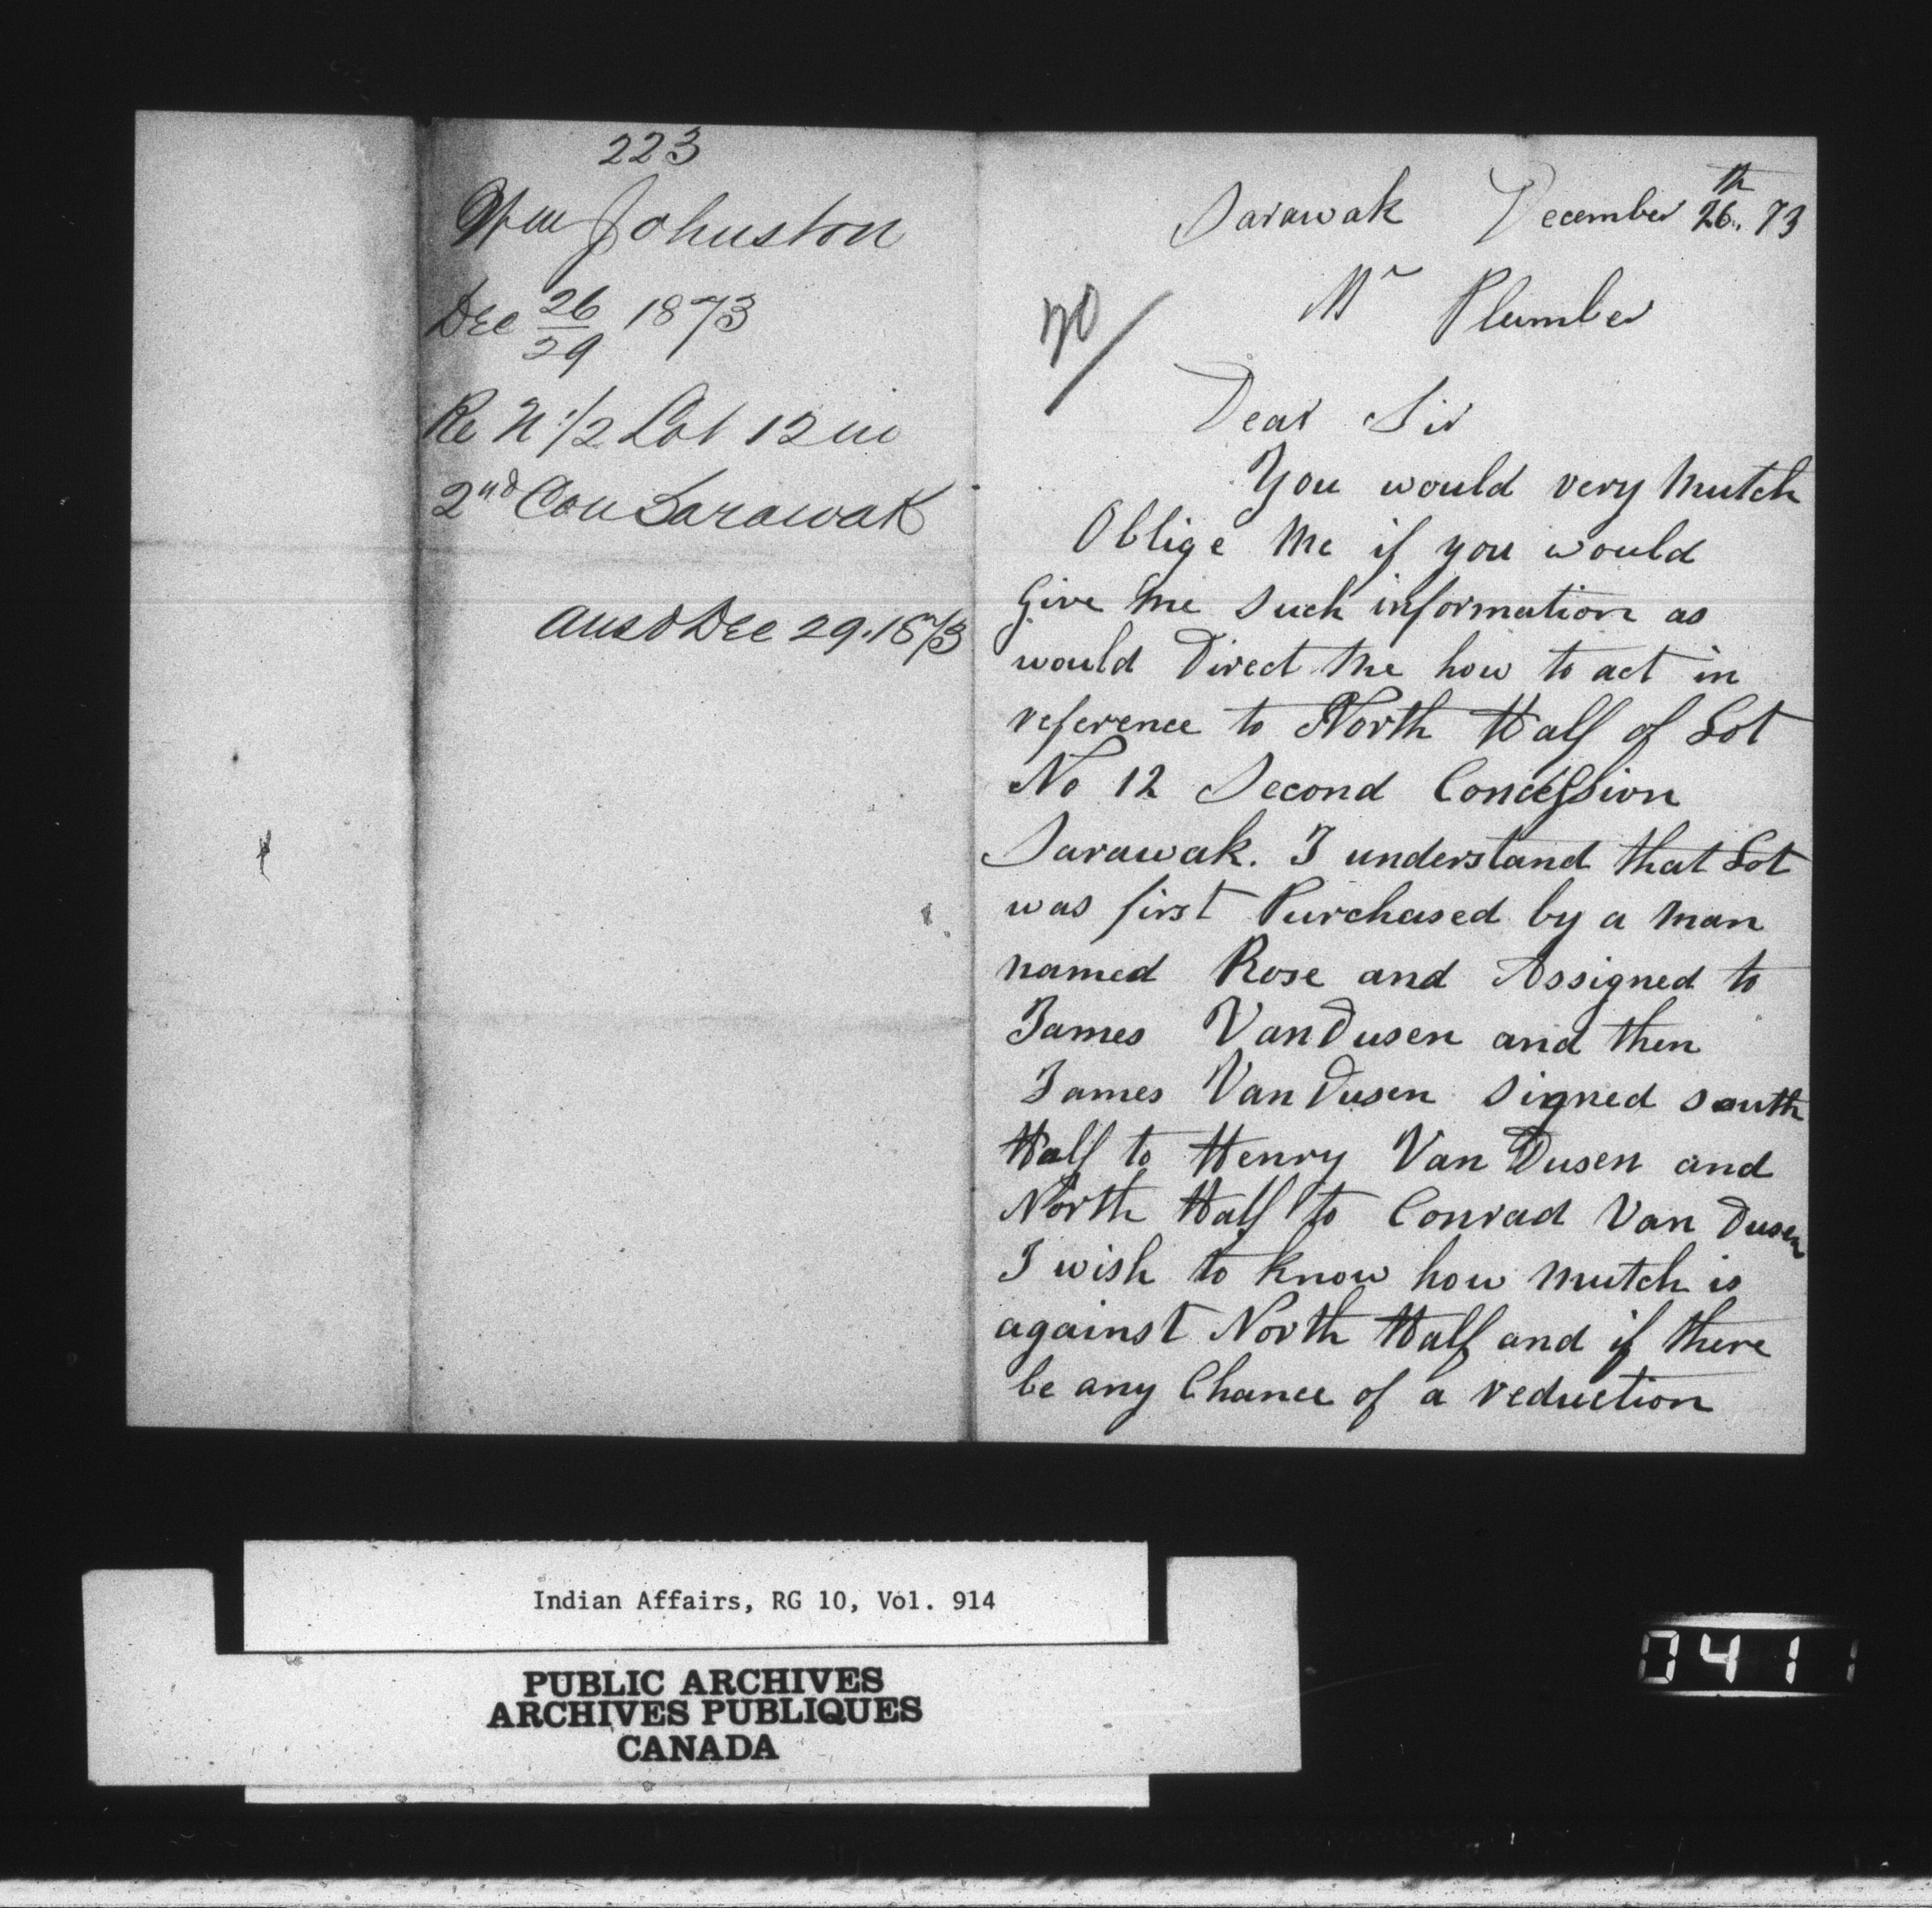 223
Wm Johnston
Dec 26/29 1873
Re N 1/2 Lot 12 in
2nd Con Sarawak
Ansd Dec 29. 1873
Sarawak December 26th. 73
Mr Plumber
Dear Sir
You would very mutch
Oblige me if you would
Give me such information as
would Direct me how to act in
reference to North Half of Lot
No 12 Second Concession
Sarawak. I understand that Lot
was first Purchased by a man
named Rose and Assigned to
James VanDusen and then
James Van Dusen signed south
Half to Henry Van Dusen and
North Half to Conrad Van Dusen
I wish to know how mutch is
against North Half and if there
be any Chance of a reduction
Indian Affairs, RG 10, Vol. 914
PUBLIC ARCHIVES
ARCHIVES PUBLIQUES
CANADA
0411